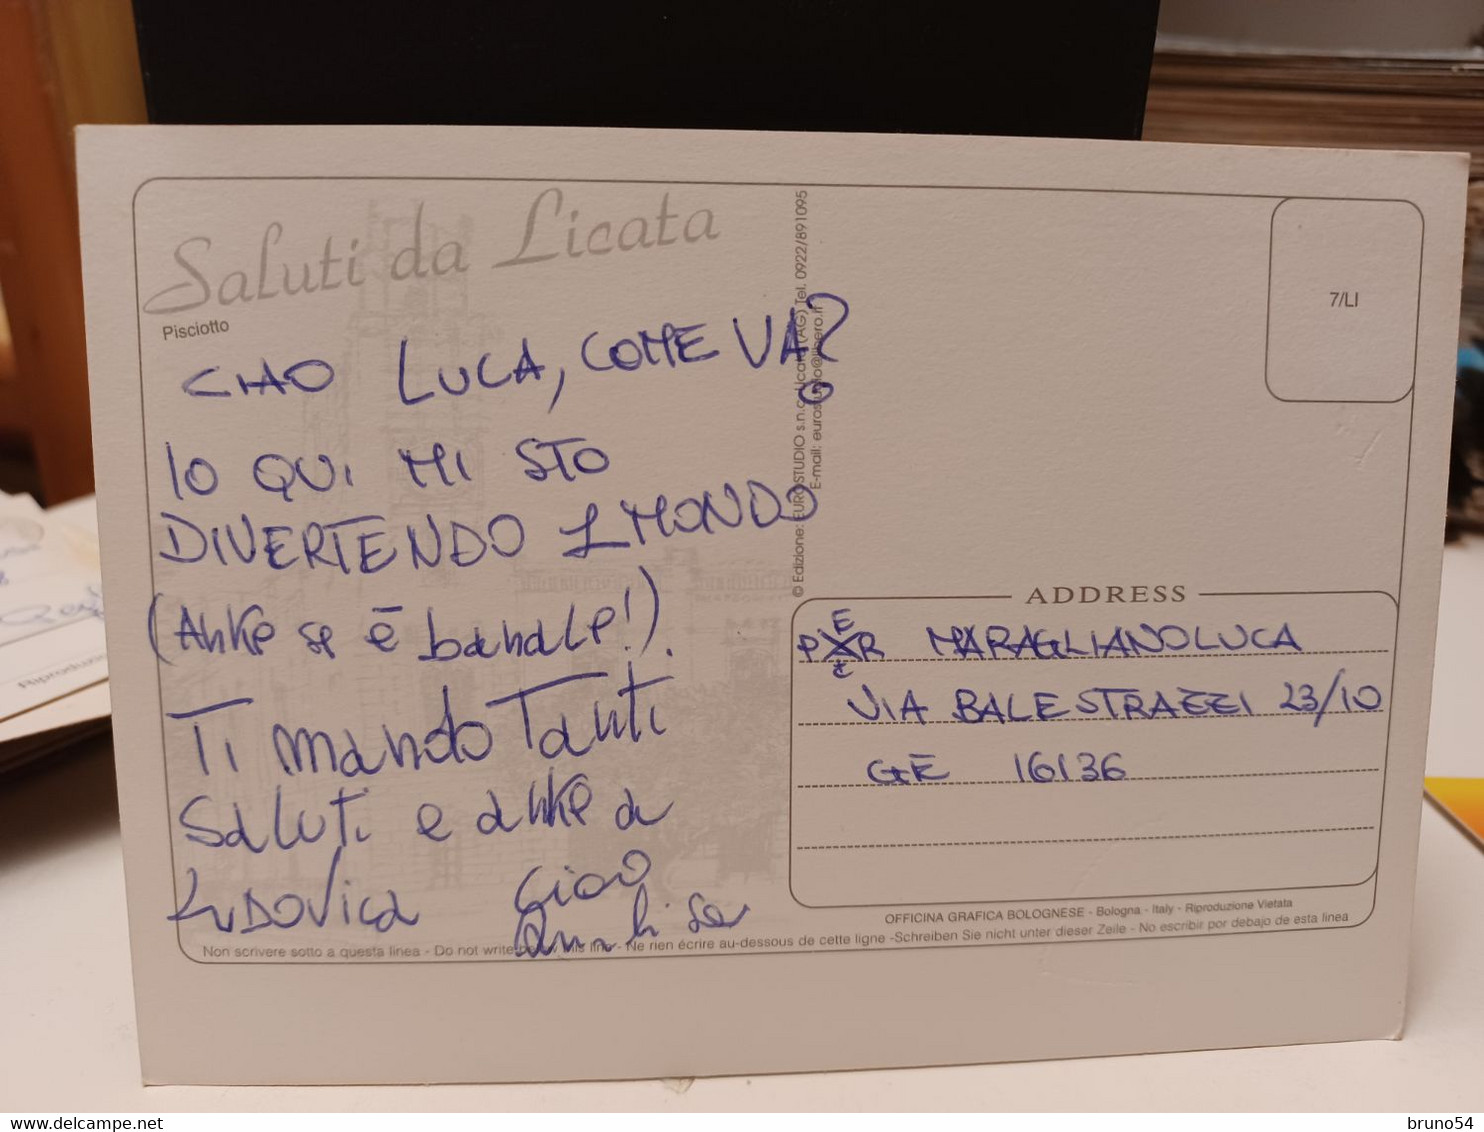 Saluti da Licata
Pisciotto
CIAO LUCA, COME VA?
IO QUI MI STO
DIVERTENDO 1 MONDO
(Anke se è banale!).
Ti mando Tanti
saluti e anke a
LUDOVica ciao
Annalisa
© Edizione: EUROSTUDIO s.n.c. Licata (AG) Tel. 0922/891095
E-mail: eurostudio@libero.it
7/LI
ADDRESS
PER MARAGLIANO LUCA
VIA BALESTRAZZI 23/10
GE 16136
OFFICINA GRAFICA BOLOGNESE - Bologna - Italy - Riproduzione Vietata
Non scrivere sotto a questa linea - Do not write below this line - Ne rien écrire au-dessous de cette ligne -Schreiben Sie nicht unter dieser Zeile - No escribir por debajo de esta linea
bruno54